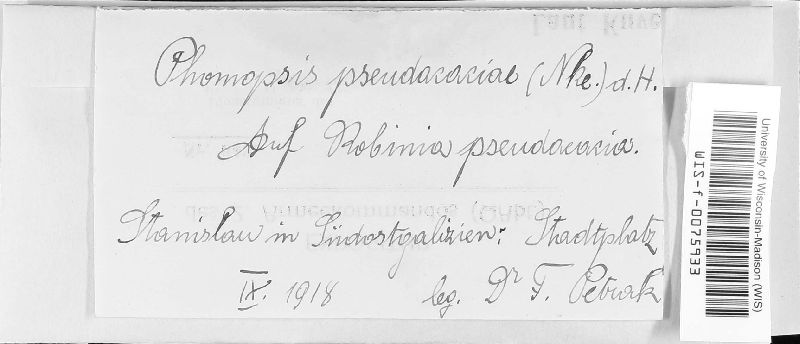 Phomopsis pseudacaciae (Nke.) d. H.
Auf Robinia pseudacacia.
Stanislau in Südostgalizien: Stadtplatz
IX. 1918 leg. Dr F. Petrak
University of Wisconsin-Madison (WIS)
WIS-f-0075933